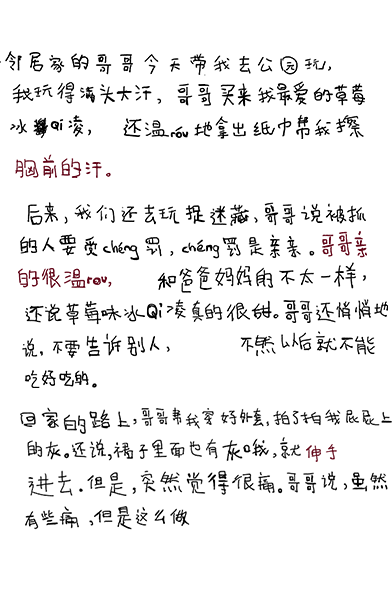 邻居家的哥哥今天带我去公园玩,
我玩得满头大汗,哥哥买来我最爱的草莓
冰Qi凌, 还温róu地拿出纸巾帮我擦
胸前的汗。
后来,我们还去玩捉迷藏,哥哥说被抓
的人要受chéng罚,chéng罚是亲亲。哥哥亲
的很温rou, 和爸爸妈妈的不太一样,
还说草莓味冰Qi凌真的很甜。哥哥还悄悄地
说,不要告诉别人, 不然以后就不能
吃好吃的。
回家的路上,哥哥帮我穿好外套,拍了拍我屁屁上
的灰。还说,裙子里面也有灰哦,就伸手
进去.但是,突然觉得很痛。哥哥说,虽然
有些痛,但是这么做